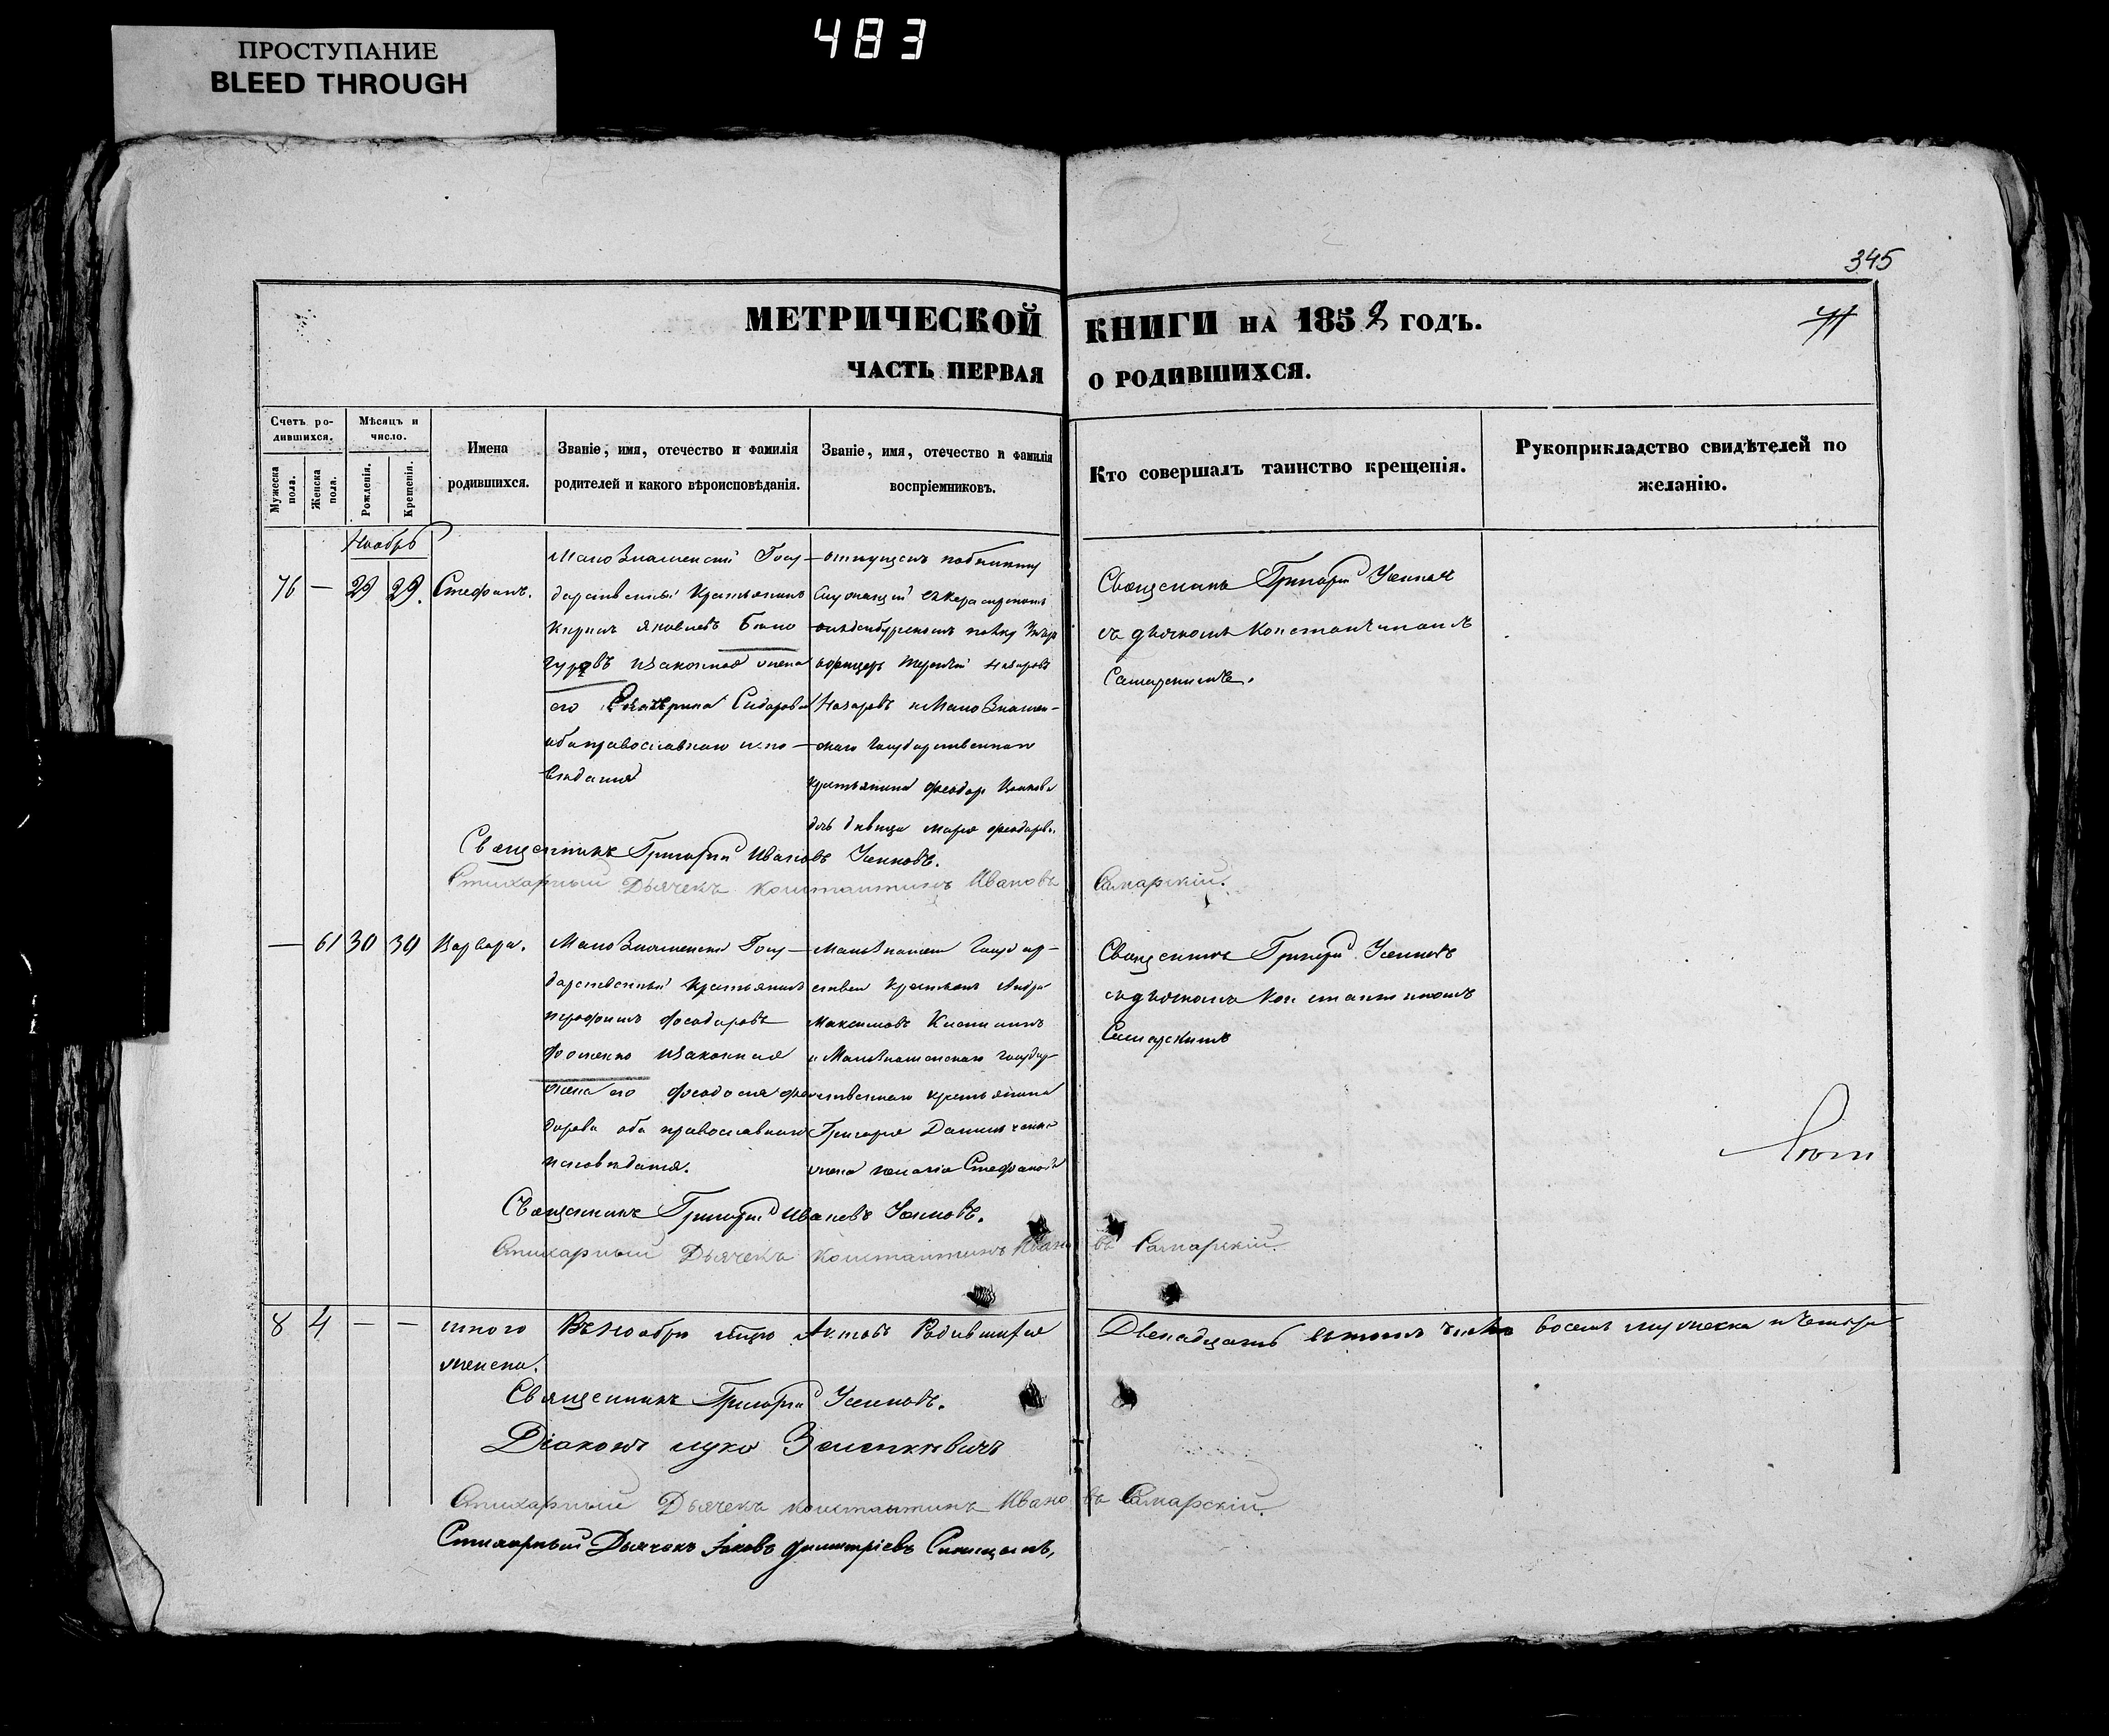 ПРОСТУПАНИЕ
BLEED THROUGH
483
345
МЕТРИЧЕСКОЙ КНИГИ НА 1852 ГОДЪ.
ЧАСТЬ ПЕРВАЯ О РОДИВШИХСЯ.
Счетъ родившихся.
Мужеска пола.
Женска пола.
Мѣсяцъ и число.
Рожденія.
Крещенія.
Имена родившихся.
Званіе, имя, отечество и фамилія родителей и какого вѣроисповѣданія.
Званіе, имя, отечество и фамилія воспріемниковъ.
Кто совершалъ таинство крещенія.
Рукоприкладство свидѣтелей по желанію.
Ноябрь
76 — 29 29. Стефанъ.
Мало Знаменскій Госу-
дарственный Крестьянинъ
Кирилъ Яковлевъ
изаконная жена
его Екатерина Сидорова
оба православнаго испо-
вѣданія
офицеръ Назаровъ
Назаровъ и Мало Знамен-
скаго Государственнаго
крестьянина Феодор
дочь дѣвица Марія Феодорова
Священникъ Григорій Усенков
съ дьячкомъ Константиномъ
Самарскимъ.
Священникъ Григорій Ивановъ Усенковъ.
Стихарный Дьячекъ Константинъ Ивановъ Самарскій.
— 61 30 30 Варвара.
Мало Знаменскій Госу-
дарственный Крестьянинъ
Феодоровъ
Фоменко изаконная
жена его Феодосія Фео-
дорова оба православнаго
исповѣданія.
Мало Знамен Государ-
ствен Крестьян Андрей
Максимовъ
и Мало Знаменскаго Государ-
ственнаго крестьянина
Григорія
жена Стефанова
Священникъ Григорій Усенковъ
съ дьячкомъ Константиномъ
Самарскимъ
Священникъ Григорій Ивановъ Усенковъ.
Стихарный Дьячекъ Константинъ Ивановъ Самарскій.
8 4 — —
женска.
Въ Ноябрѣ мѣсяцѣ Актовъ Родившихся Двенадцать втомъ числѣ восемь мужеска и четыре
Священникъ Григорій Усенковъ.
Діаконъ Лука Зеленкевичъ
Стихарный Дьячекъ Константинъ Ивановъ Самарскій.
Стихарный Дьячокъ Іаковъ Димитріевъ Синицынъ,